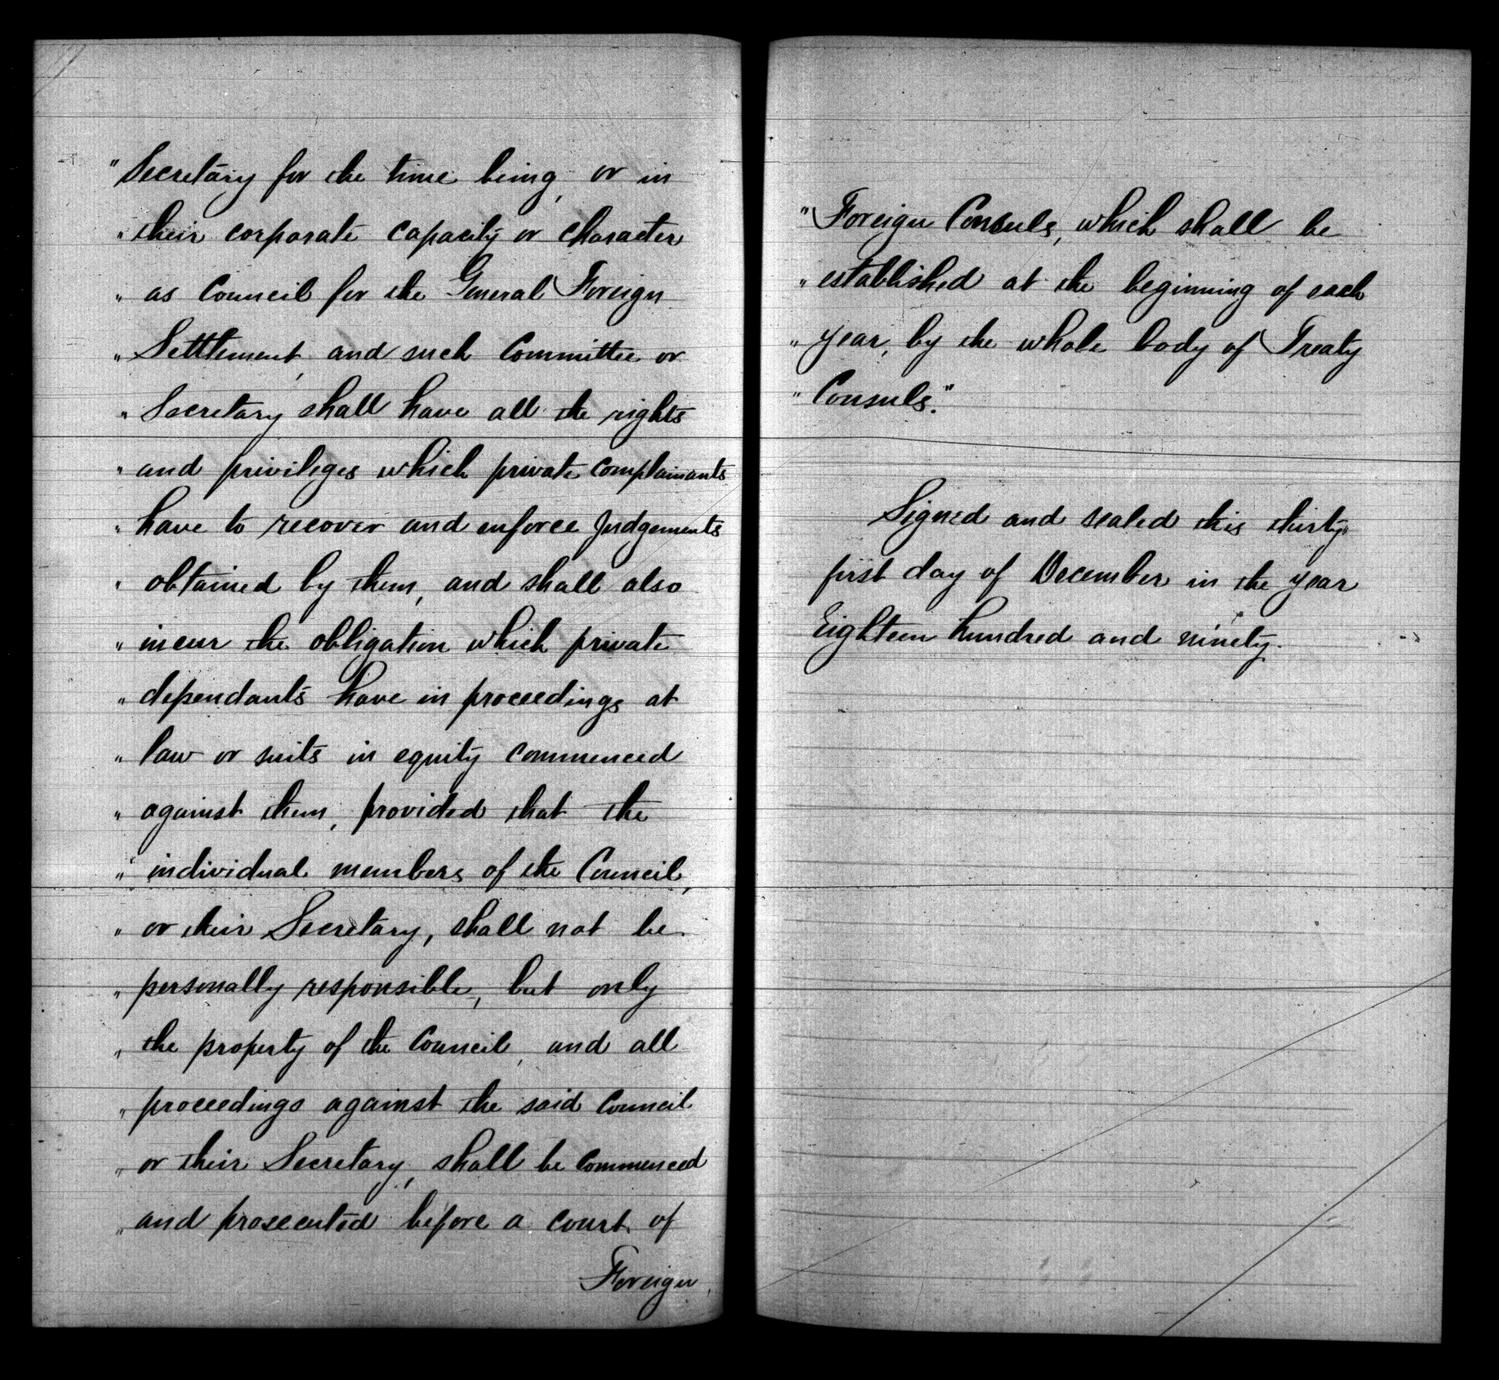 "Secretary for the time being, or in
" their corporate capacity or character
" as Council for the General Foreign
" Settlement, and such Committee or
" Secretary shall have all the rights
" and privileges which private complainants
" have to recover and enforce Judgements
" obtained by them, and shall also
" incur the obligation which private
" dependants have in proceedings at
" law or suits in equity commenced
" against them, provided that the
" individual members of the Council,
" or their Secretary, shall not be
" personally responsible, but only
" the property of the Council, and all
" proceedings against the said Council
" or their Secretary, shall be commenced
" and prosecuted before a court of
Foreign
" Foreign Consuls, which shall be
" established at the beginning of each
" year, by the whole body of Treaty
" Consuls."
Signed and sealed this thirty
first day of December in the year
Eighteen hundred and ninety.